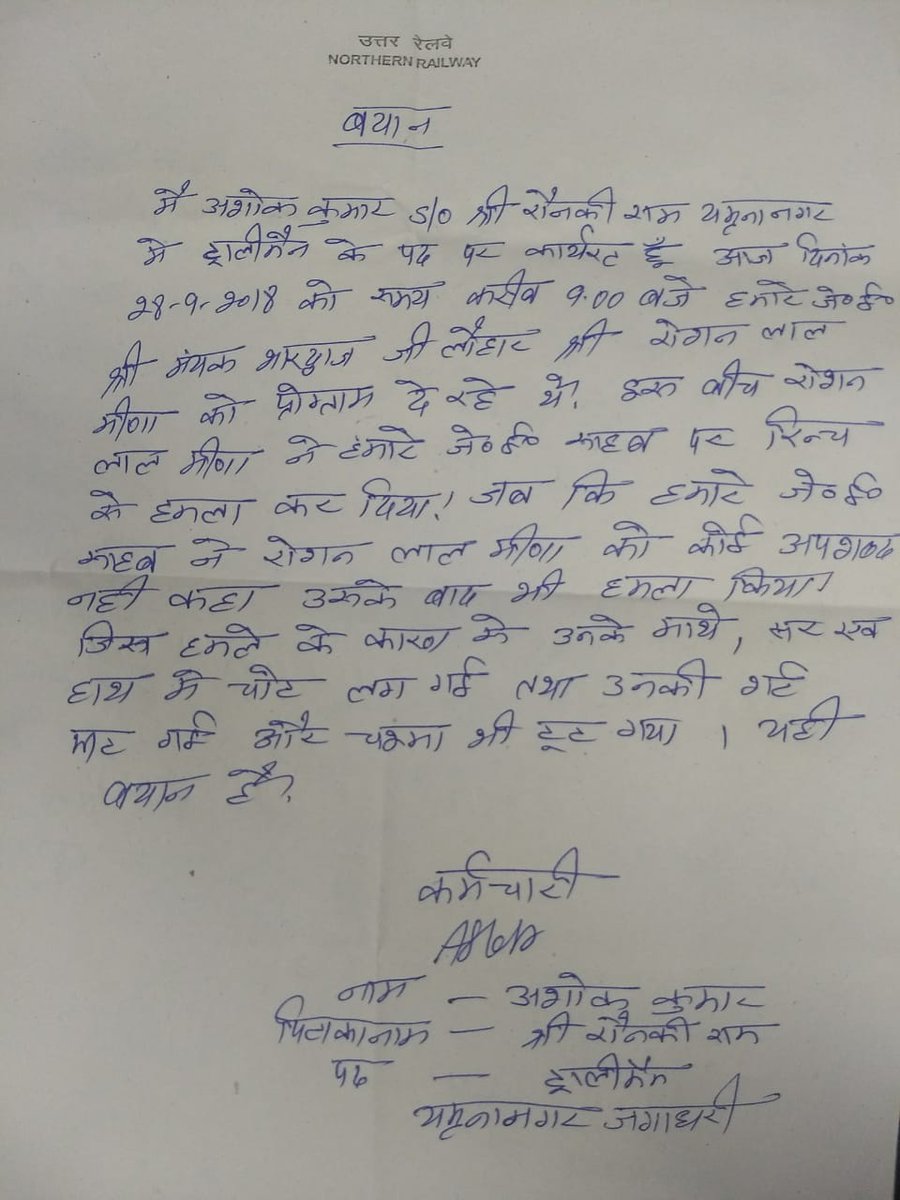 उत्तर रेलवे
NORTHERN RAILWAY
बयान
मै अशोक कुमार S/O श्री रौनकी राम यमुनानगर
मे ट्रालीमैन के पद पर कार्यरत हूँ आज दिनांक
28-9-2018 को समय करीब 9:00 बजे हमारे जे०ई०
श्री मंयक भारद्वाज जी लौहार श्री रोशन लाल
मीणा को प्रोग्राम दे रहे थे। इस बीच रोशन
लाल मीणा ने हमारे जे०ई० साहब पर रिन्च
से हमला कर दिया। जब कि हमारे जे०ई०
साहब ने रोशन लाल मीणा को कोई अपशब्द
नही कहा उसके बाद भी हमला किया।
जिस हमले के कारण से उनके माथे, सर एव
हाथ मे चोट लग गई तथा उनकी शर्ट
फट गई और चश्मा भी टूट गया । यही
बयान है।
कर्मचारी
नाम - अशोक कुमार
पिताकानाम - श्री रौनकी राम
पद - ट्रालीमैन
यमुनानगर जगाधरी